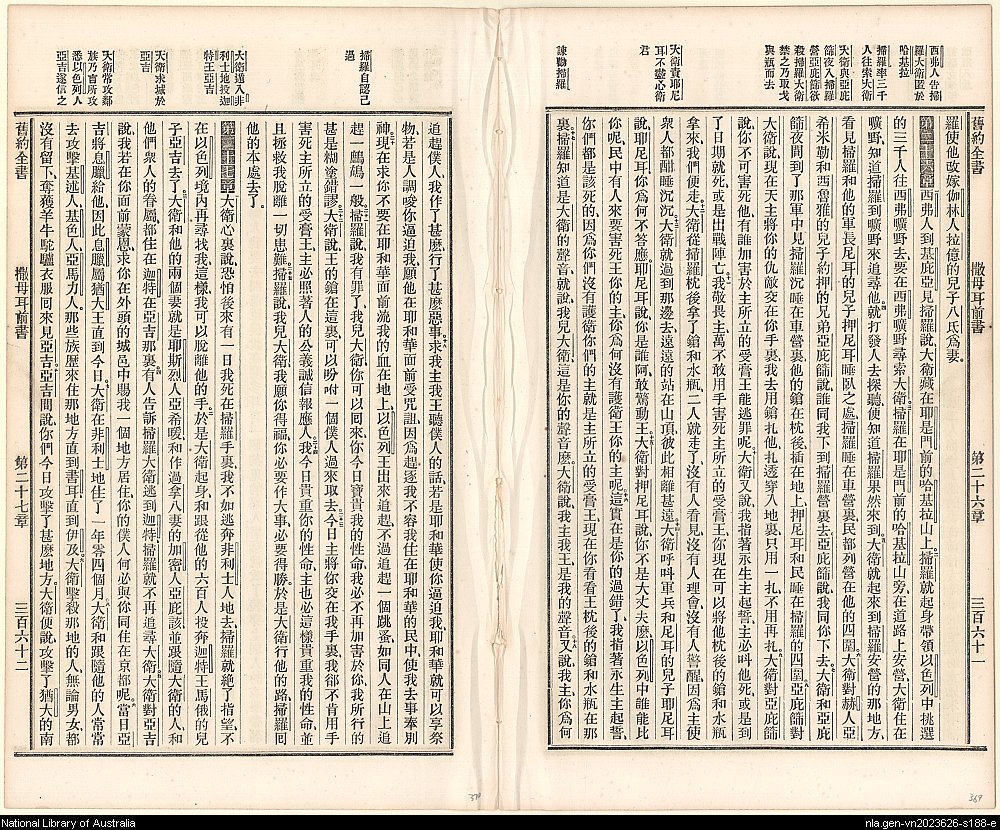 西弗人告掃
羅大衛匿於
哈基拉
掃羅率三千
人往索大衛
大衛與亞庇
篩夜入掃羅
營亞庇篩欲
殺掃羅大衛
禁之乃取戈
與瓶而去
大衛責耶尼
耳不盡心衛
君
諫勸掃羅
舊約全書
撒母耳前書
第二十六章
三百六十一
羅使他改嫁伽林人拉億的兒子八氐爲妻
第二十六章 西弗人到基庇亞見掃羅說大衛藏在耶是門前的哈基拉山上掃羅就起身帶領以色列中挑選
的三千人往西弗曠野去要在西弗曠野尋索大衛掃羅在耶是門前的哈基拉山旁在道路上安營大衛住在
曠野知道掃羅到曠野來追尋他就打發人去探聽便知道掃羅果然來到大衛就起來到掃羅安營的那地方
看見掃羅和他的軍長尼耳的兒子押尼耳睡臥之處掃羅睡在車營裏民都列營在他的四圍大衛對赫人亞
希米勒和西魯雅的兒子約押的兄弟亞庇篩說誰同我下到掃羅營裏去亞庇篩說我同你下去大衛和亞庇
篩夜間到了那軍中見掃羅沉睡在車營裏他的鎗在枕後插在地上押尼耳和民睡在掃羅的四圍亞庇篩對
大衛說現在天主將你的仇敵交在你手裏我去用鎗扎他扎透穿入地裏只用一扎不用再扎大衛對亞庇篩
說你不可害死他有誰加害於主所立的受膏王能逃罪呢大衛又說我指著永生主起誓主必叫他死或是到
了日期就死或是出戰陣亡我敬畏主萬不敢用手害死主所立的受膏王你現在可以將他枕後的鎗和水瓶
拿來我們便走大衛從掃羅枕後拿了鎗和水瓶二人就走了沒有人看見沒有人理會沒有人警醒因爲主使
衆人都酣睡沉沉大衛就過到那邊去遠遠的站在山頂彼此相離甚遠大衛呼叫軍兵和尼耳的兒子押尼耳
說耶尼耳你爲何不答應耶尼耳說你是誰阿敢驚動王大衛對押尼耳說你不是大丈夫麽以色列中誰能比
你呢民中有人來要害死王你的主你爲何沒有護衛王你的主呢這實在是你的過錯了我指著永生主起誓
你們都是該死的因爲你們沒有護衛你們的主就是主所立的受膏王現在你看看王枕後的鎗和水瓶在那
裏掃羅知道是大衛的聲音就說我兒大衛這是你的聲音麽大衛說我主我王是我的聲音又說我主你爲何
掃羅自認己
過
大衛遁入非
利士地投迦
特王亞吉
大衛求城於
亞吉
大衛常攻鄰
族乃言所攻
悉以色列人
亞吉遂信之
追趕僕人我作了甚麽行了甚麽惡事求我主我王聽僕人的話若是耶和華使你逼迫我耶和華就可以享祭
物若是人調唆你逼迫我願他在耶和華面前受咒詛因爲趕逐我不容我住在耶和華的民中使我去事奉別
神現在求你不要在耶和華面前流我的血在地上以色列王出來追趕不過追趕一個跳蚤如同人在山上追
趕一鷓鴣一般掃羅說我有罪了我兒大衛你可以回來你今日寶貴我的性命我必不再加害於你我所行的
甚是糊塗錯謬大衛說王的鎗在這裏可以吩咐一個僕人過來取去今日主將你交在我手裏我卻不肯用手
害死主所立的受膏王主必照著人的公義誠信報應人我今日貴重你的性命主也必這樣貴重我的性命並
且拯救我脫離一切患難掃羅說我兒大衛我願你得福你必要作大事必要得勝於是大衛行他的路掃羅回
他的本處去了
第二十七章 大衛心裏說恐怕後來有一日我死在掃羅手裏我不如逃奔非利士人地去掃羅就絶了指望不
在以色列境內再尋找我這樣我可以脫離他的手於是大衛起身和跟從他的六百人投奔迦特王馬俄的兒
子亞吉去了大衛和他的兩個妻就是耶斯烈人亞希暖和作過拿八妻的加密人亞庇該並跟隨大衛的人和
他們衆人的眷屬都住在迦特在亞吉那裏有人告訴掃羅大衛逃到迦特掃羅就不再追尋大衛大衛對亞吉
說我若在你面前蒙恩求你在外頭的城邑中賜我一個地方居住你的僕人何必與你同住在京都呢當日亞
吉將息臘給他因此息臘屬猶大王直到今日大衛在非利士地住了一年零四個月大衛和跟隨他的人常常
去攻擊基述人基色人亞馬力人那些族歷來住那地方直到書耳直到伊及大衛擊殺那地的人無論男女都
沒有留下奪獲羊牛駝驢衣服回來見亞吉亞吉問說你們今日攻擊了甚麽地方大衛便說攻擊了猶大的南
舊約全書
撒母耳前書
第二十七章
三百六十二
369
National Library of Australia
nla.gen-vn2023626-s188-e